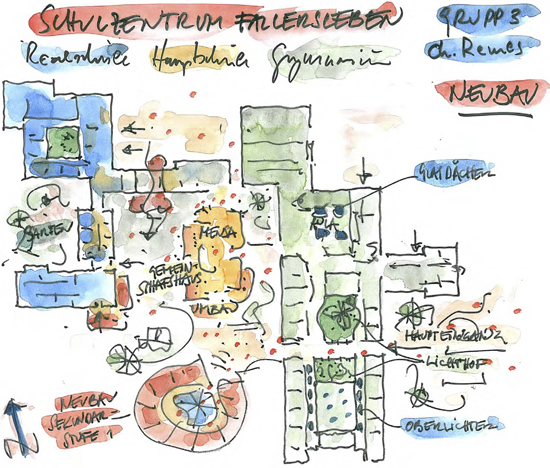 SCHULZENTRUM FALLERSLEBEN
GRUPP 3
Realschule Hauptschule Gymnasium
Ch. Remes
NEUBAU
GLASDÄCHER
GARTEN
MEDIA
GEMEIN-
SCHAFTSHAUS
UMBAU
HAUPTEINGANG
LICHTHOF
NEUBAU
SEKUNDAR-
STUFE 1
OBERLICHTER